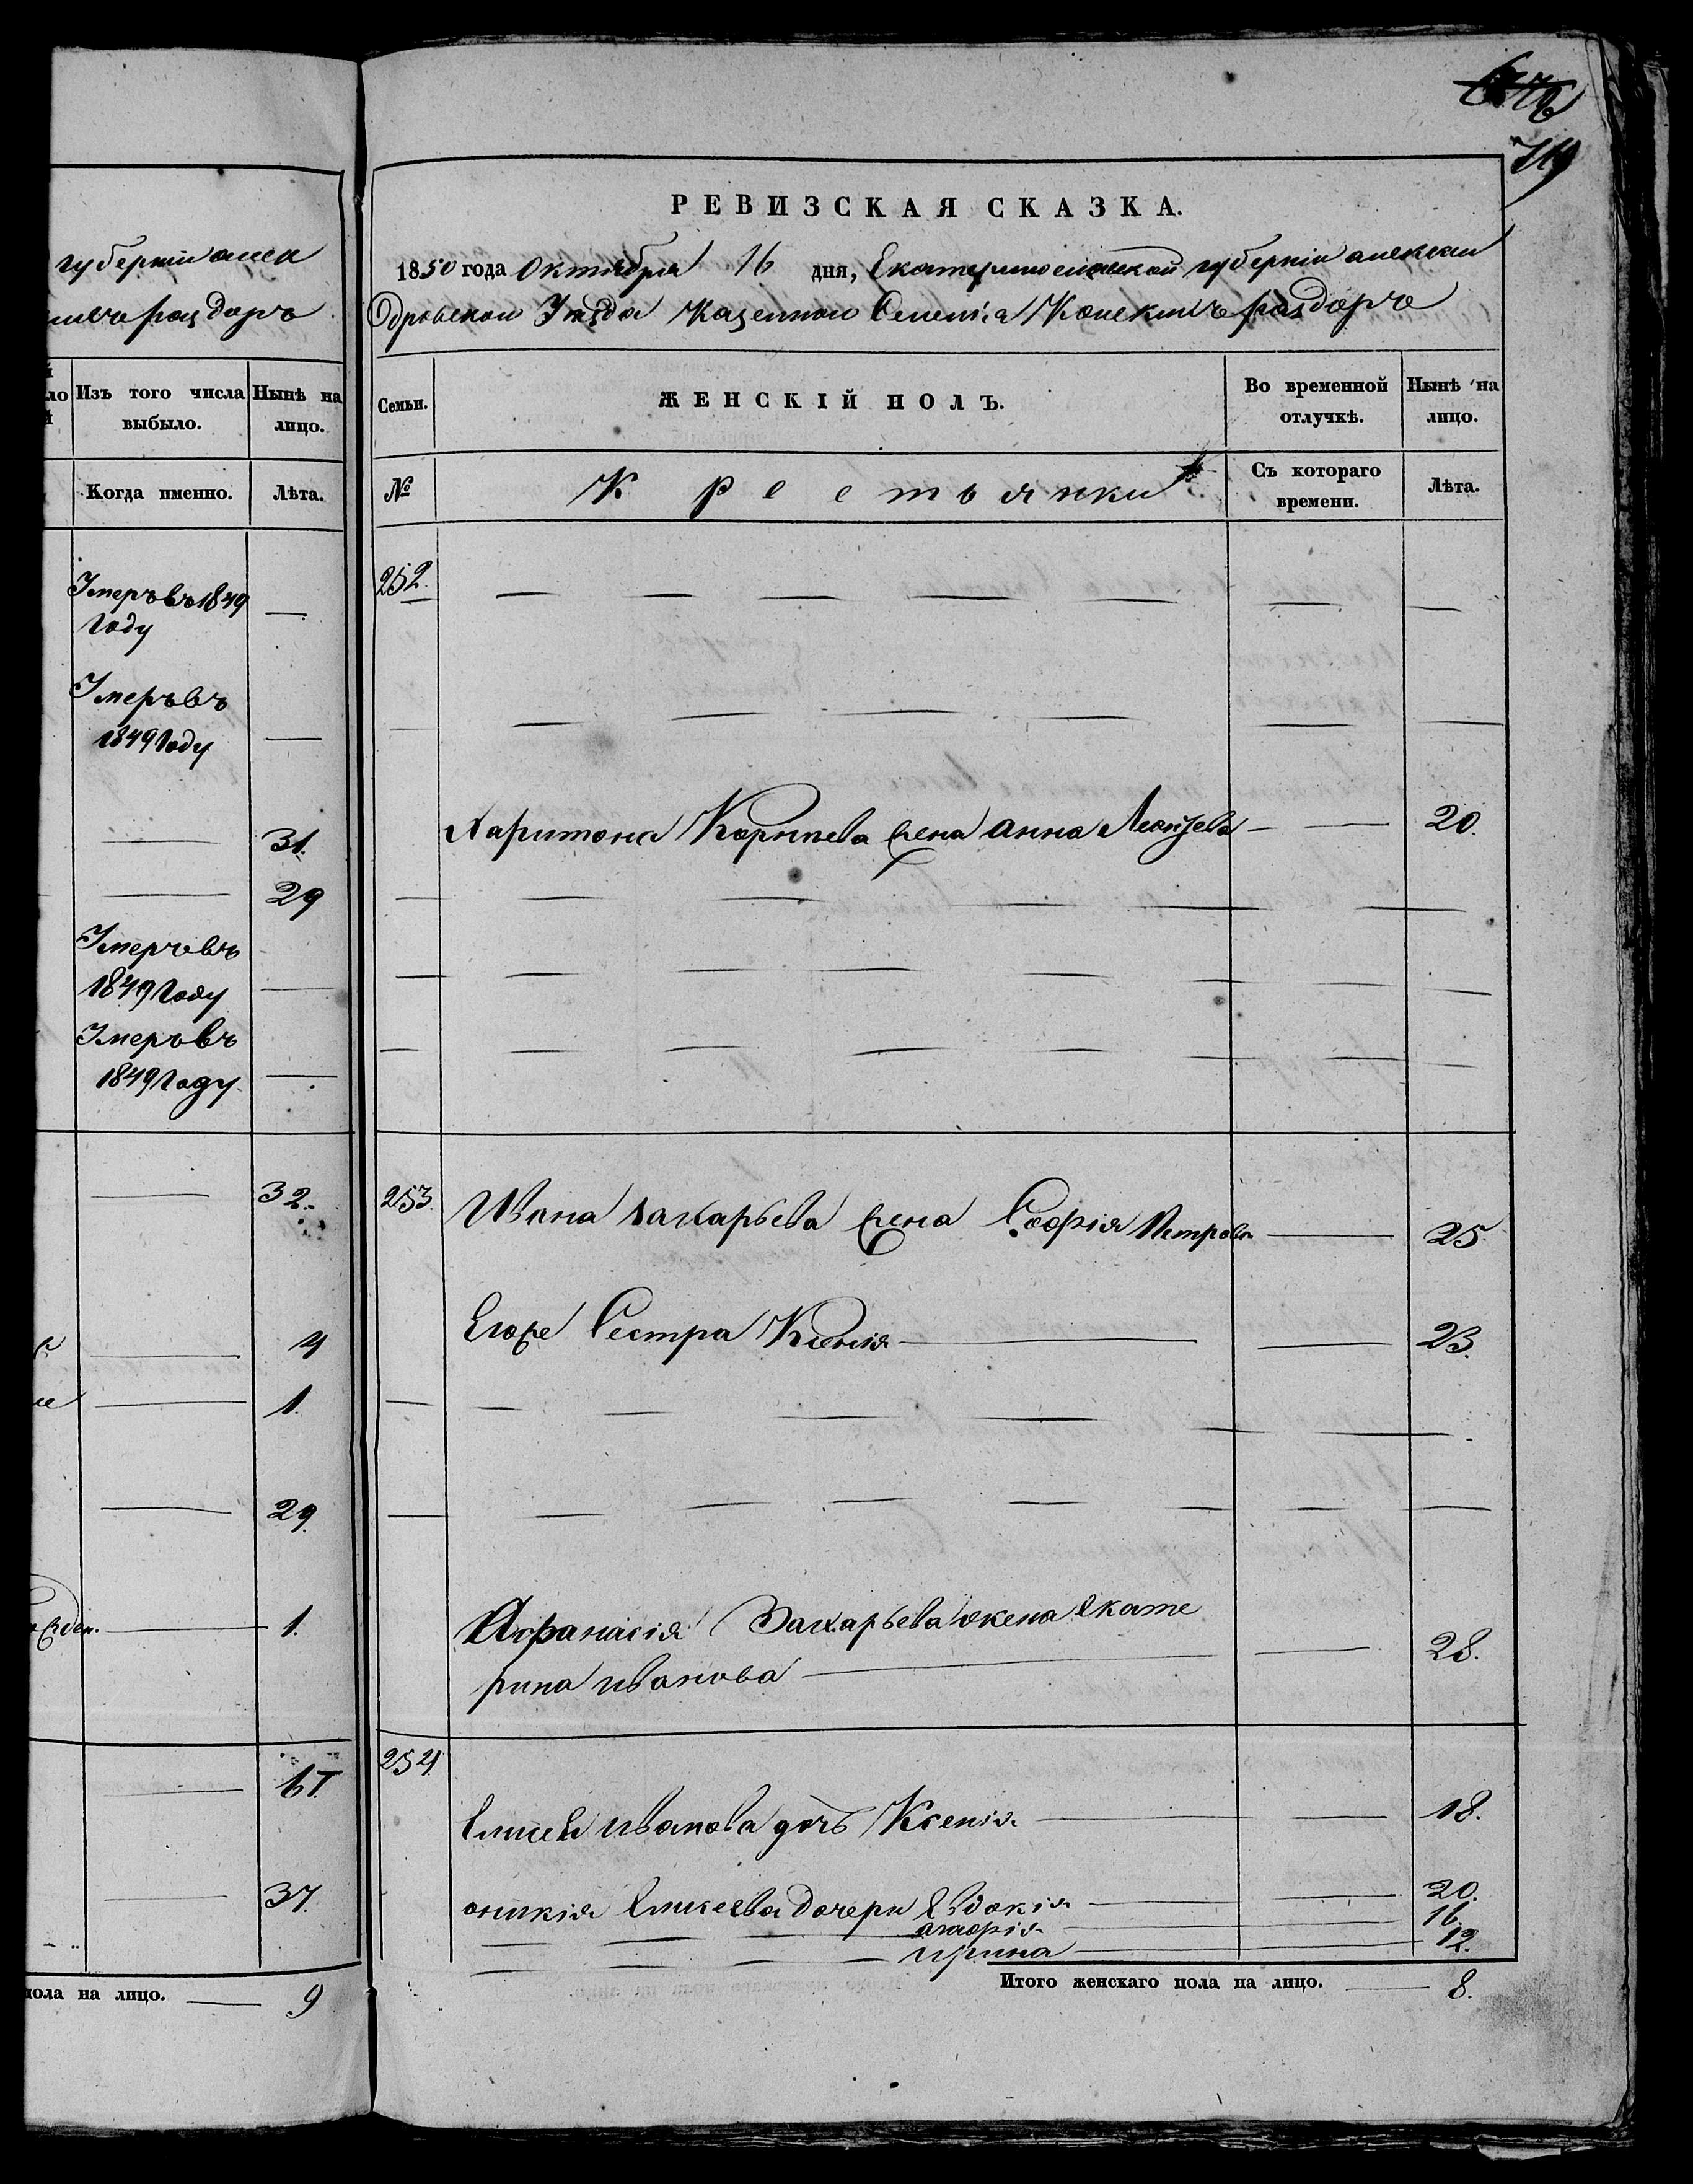 719
губерніи алек
раздоръ
Изъ того числа выбыло.
Нынѣ на лицо.
Когда именно.
Лѣта.
Умеръ въ 1849
Году
Умеръ въ
1849 Году
31.
29
Умеръ въ
1849 Году
Умеръ въ
1849 Году
32.
4
1.
29.
1.
37.
пола на лицо. 9
РЕВИЗСКАЯ СКАЗКА.
1850 года Октября 16 дня, Екатеринославской губерніи алексан
дровскои Уѣзда Казенной Селенія Конскихъ раздоръ
Семьи.
ЖЕНСКІЙ ПОЛЪ.
Во временной отлучкѣ.
Нынѣ на лицо.
№
Крестьянки
Съ котораго времени.
Лѣта.
252.
Харитона Корнѣева жена анна 20.
253. Ивана захарьева жена Софія Петрова 25
Егоже Сестра Ксенія 23.
Афанасія Захарьева жена екате
рина иванова 28.
254.
Елисея иванова дочь Ксенія 18.
Елисеева дочери Евдокія 20.
16.
ирина 12.
Итого женскаго пола на лицо. 8.